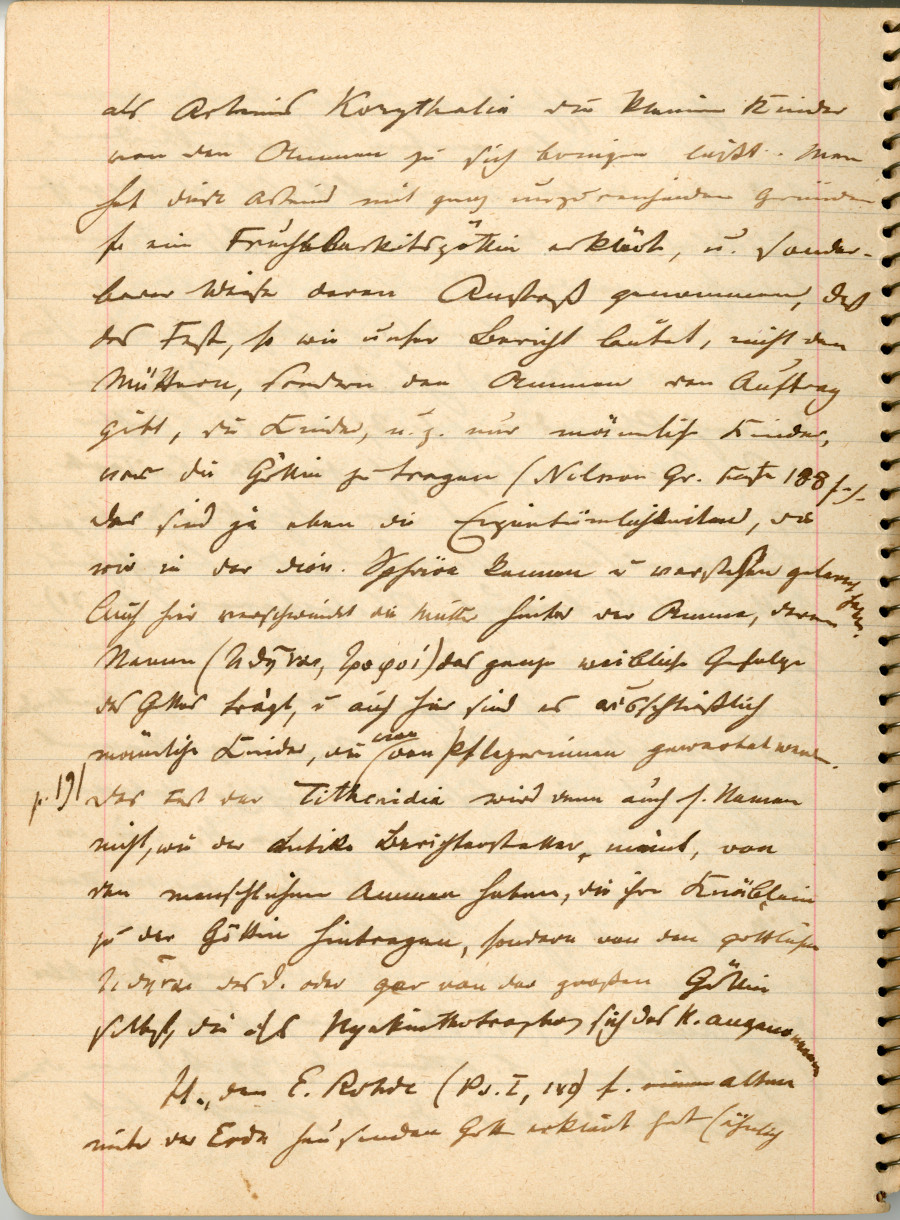 als Artemis Korythalia die kleinen Kinder
von den Ammen zu sich bringen läßt. Man
hat diese Artemis mit ganz unzureichenden Gründen
f. eine Fruchtbarkeitsgöttin erklärt, u. sonder-
barer Weise daran Anstoß genommen, daß
das Fest, so wie unser Bericht lautet, nicht den
Müttern, sondern den Ammen den Auftrag
gibt, die Kinder, u. z. nur männliche Kinder,
vor die Göttin zu tragen (Nilsson Gr. Feste 188 f.).
das sind ja eben die Eigentümlichkeiten, die
wir in der dion. Sphäre kennen u verstehen gelernt haben.
Auch hier verschwindet die Mutter hinter der Amme, deren
Namen (τιθῆναι, τροφοί) das ganze weibliche Gefolge
des Gottes trägt, u auch hier sind es ausschließlich
männliche Kinder, die von Pflegerinnen gewartet werden.
p. 191 Das Fest der Tithenidia wird denn auch s. Namen
nicht, wie der antike Berichterstatter meint, von
den menschlichen Ammen haben, die ihre Knäblein
zu der Göttin hintragen, sondern von den göttlichen
τιθῆναι des D. oder gar von der großen Göttin
selbst, die als Hyakinthotrophos sich des H. angenommen
H., den E. Rohde (Ps. I, 140) f. einen alten
unter der Erde hausenden Gott erklärt hat (ähnlich